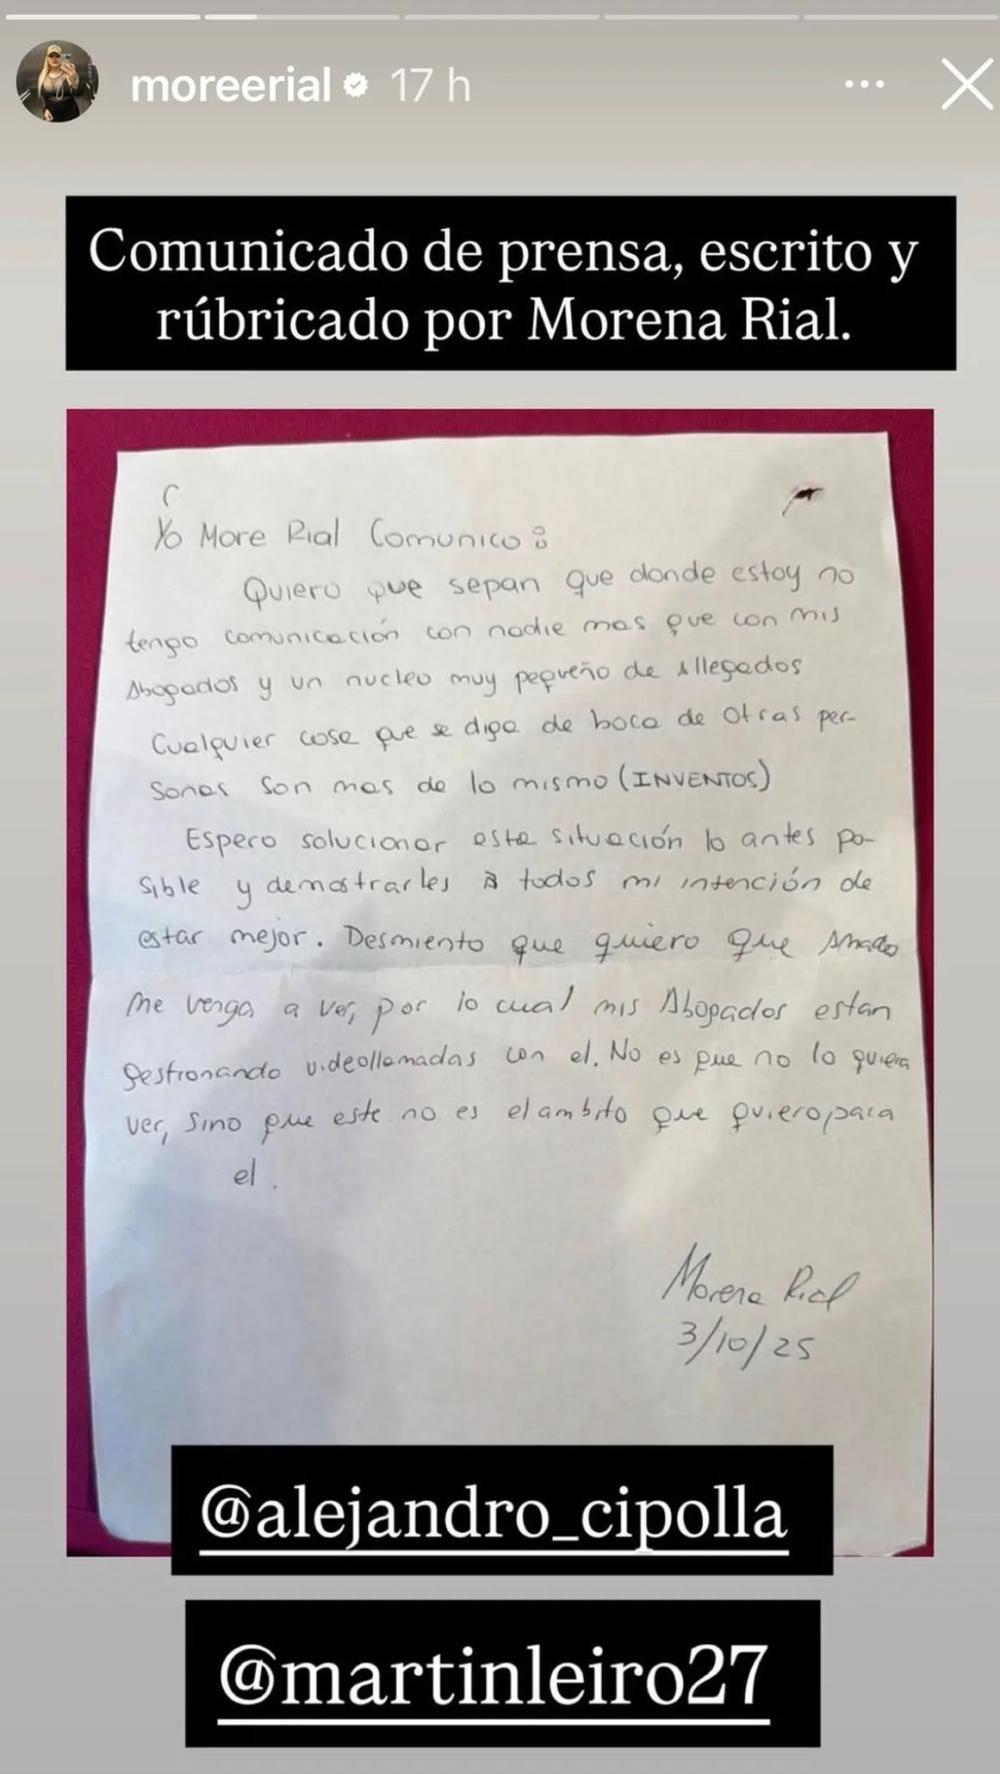 moreerial 17 h
Comunicado de prensa, escrito y
rúbricado por Morena Rial.
Yo More Rial Comunico:
Quiero que sepan que donde estoy no
tengo comunicación con nadie mas que con mis
Abogados y un nucleo muy pequeño de Allegados
Cualquier cosa que se diga de boca de Otras per-
sonas son mas de lo mismo (INVENTOS)
Espero solucionar esta situación lo antes po-
sible y demostrarles A todos mi intención de
estar mejor. Desmiento que quiero que Amado
me venga a ver, por lo cual mis Abogados estan
gestionando videollamadas con el. No es que no lo quiera
ver, sino que este no es el ambito que quiero para
el.
Morena Rial
3/10/25
@alejandro_cipolla
@martinleiro27